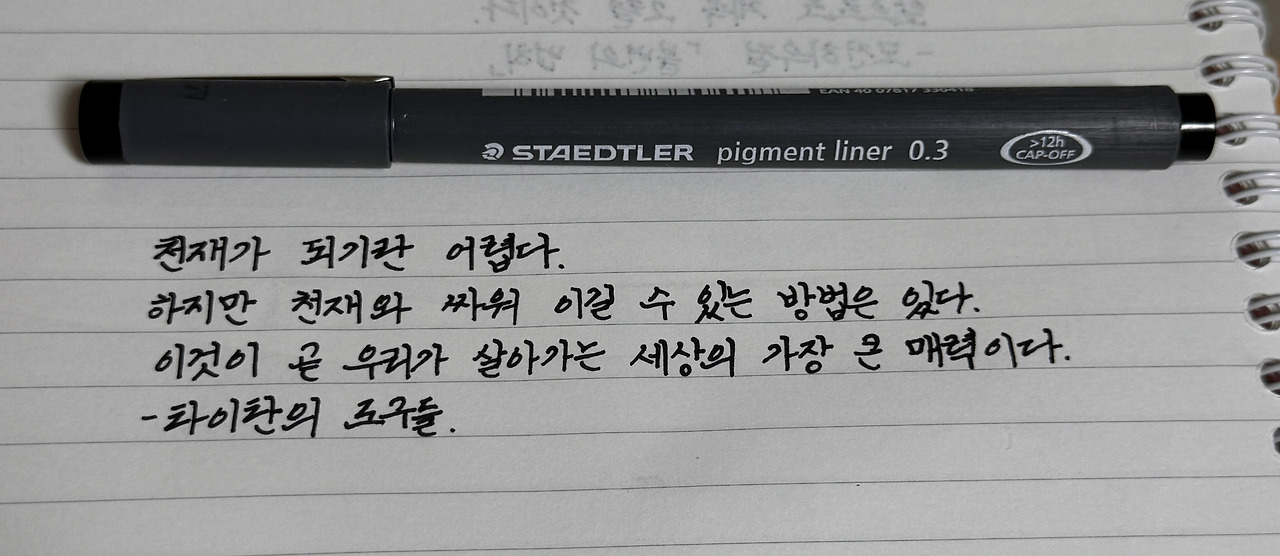 EAN 40 07817 330418
STAEDTLER pigment liner 0.3
>12h
CAP-OFF
천재가 되기란 어렵다.
하지만 천재와 싸워 이길 수 있는 방법은 있다.
이것이 곧 우리가 살아가는 세상의 가장 큰 매력이다.
-타이탄의 도구들.